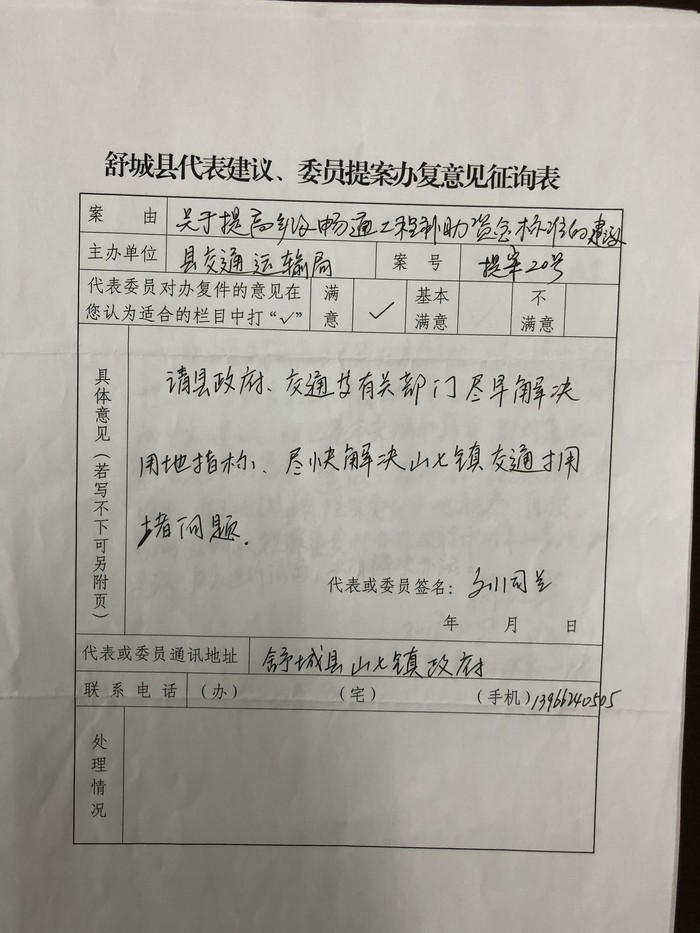 舒城县代表建议、委员提案办复意见征询表
案 由 关于提高乡级畅通工程补助资金标准的建议
主办单位 县交通运输局 案 号 提案20号
代表委员对办复件的意见在 满 ✓ 基本 不
您认为适合的栏目中打“✓” 意 满意 满意
具体意见（若写不下可另附页）
请县政府、交通及有关部门尽早解决
用地指标、尽快解决山七镇交通拥
堵问题.
代表或委员签名：
年 月 日
代表或委员通讯地址 舒城县山七镇政府
联系电话 （办） （宅） （手机）13966240505
处理情况